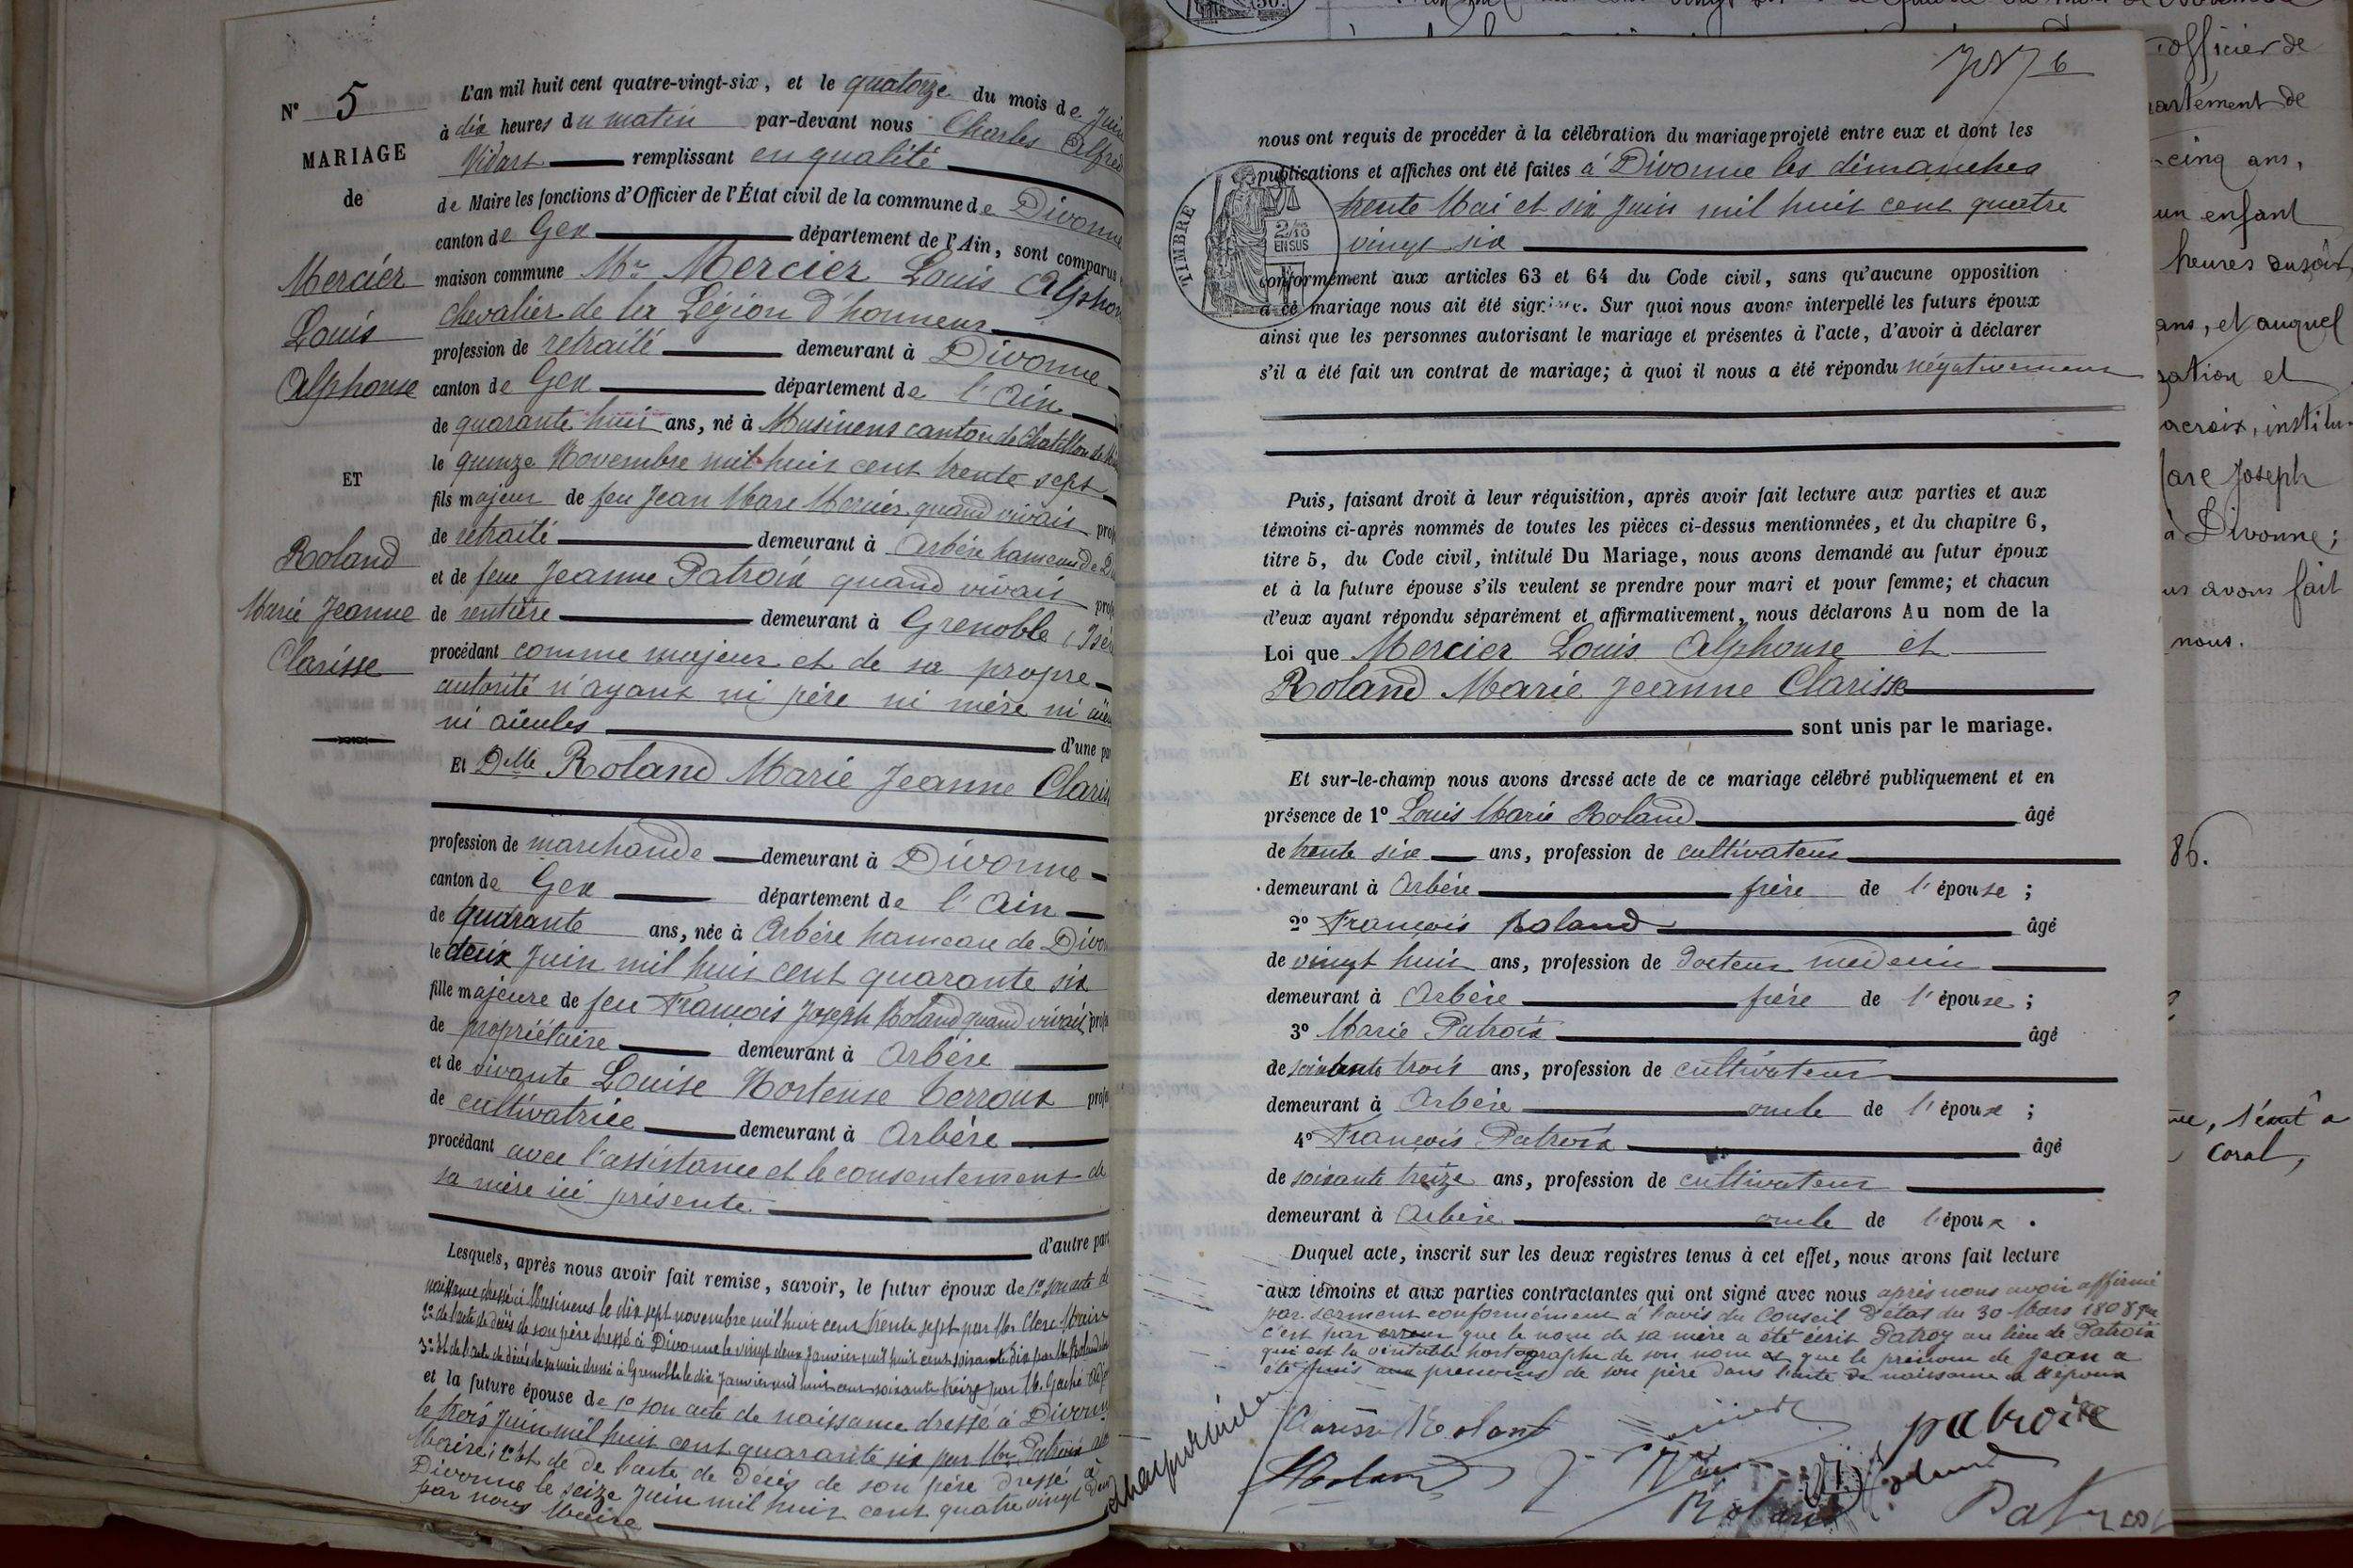 N° 5
MARIAGE
de
Mercier
Louis
Alphonse
ET
Roland
Marie Jeanne
Clarisse
L'an mil huit cent quatre-vingt-six, et le quatorze du mois de Juin
à dix heures du matin par-devant nous Charles Alfred
Vidart remplissant en qualité
de Maire les fonctions d'Officier de l'État civil de la commune de Divonne
canton de Gex département de l'Ain, sont comparus
maison commune Mr Mercier Louis Alphon
Chevalier de la Légion d'honneur
profession de retraité demeurant à Divonne
canton de Gex département de l'Ain
de quarante huit ans, né à Musinens canton de Chatillon de
le quinze Novembre mil huit cent trente sept
fils majeur de feu Jean Marc Mercier quand vivait prof
de retraité demeurant à Arbère hameau de
et de feue Jeanne Patroix quand vivait prof
de rentière demeurant à Grenoble (Isèr
procédant comme majeur et de sa propre
autorité n'ayant ni père ni mère ni aïeu
ni aïeules d'une pa
Et Delle Roland Marie Jeanne Claris
profession de marchande demeurant à Divonne
canton de Gex département de l'Ain
de quarante ans, née à Arbère hameau de Divo
le deux Juin mil huit cent quarante six
fille majeure de feu François Joseph Roland quand vivait prof
de propriétaire demeurant à Arbère
et de vivante Louise Hortense Verroux prof
de cultivatrice demeurant à Arbère
procédant avec l'assistance et le consentement de
sa mère ici présente
d'autre part
Lesquels, après nous avoir fait remise, savoir, le futur époux de 1° son acte de
naissance dressé à Musinens le dix sept novembre mil huit cent trente sept par Mr Clerc Maire
2° de l'acte de décès de son père dressé à Divonne le vingt deux Janvier mil huit cent soixante dix par Mr Roland
3° Et de l'acte de décès de sa mère dressé à Grenoble le dix Janvier mil huit cent soixante treize par Mr. Gaché
et la future épouse de 1° son acte de naissance dressé à Divonne
le trois Juin mil huit cent quarante six par Mr Patroix
Maire; 2° Et de de l'acte de décès de son père dressé à
Divonne le seize Juin mil huit cent quatre vingt deux
par nous Maire
6
nous ont requis de procéder à la célébration du mariage projeté entre eux et dont les
publications et affiches ont été faites à Divonne les dimanches
trente Mai et six Juin mil huit cent quatre
vingt six
TIMBRE
2/10
EN SUS
conformément aux articles 63 et 64 du Code civil, sans qu'aucune opposition
à ce mariage nous ait été signifiée. Sur quoi nous avons interpellé les futurs époux
ainsi que les personnes autorisant le mariage et présentes à l'acte, d'avoir à déclarer
s'il a été fait un contrat de mariage; à quoi il nous a été répondu négativement
Puis, faisant droit à leur réquisition, après avoir fait lecture aux parties et aux
témoins ci-après nommés de toutes les pièces ci-dessus mentionnées, et du chapitre 6,
titre 5, du Code civil, intitulé Du Mariage, nous avons demandé au futur époux
et à la future épouse s'ils veulent se prendre pour mari et pour femme; et chacun
d'eux ayant répondu séparément et affirmativement, nous déclarons Au nom de la
Loi que Mercier Louis Alphonse et
Roland Marie Jeanne Clarisse
sont unis par le mariage.
Et sur-le-champ nous avons dressé acte de ce mariage célébré publiquement et en
présence de 1° Louis Marie Roland âgé
de trente six ans, profession de cultivateur
demeurant à Arbère frère de l'épouse;
2° François Roland âgé
de vingt huit ans, profession de docteur medecin
demeurant à Arbère frère de l'épouse;
3° Marie Patroix âgé
de soixante trois ans, profession de cultivateur
demeurant à Arbère oncle de l'époux;
4° François Patroix âgé
de soixante treize ans, profession de cultivateur
demeurant à Arbère oncle de l'époux.
Duquel acte, inscrit sur les deux registres tenus à cet effet, nous avons fait lecture
aux témoins et aux parties contractantes qui ont signé avec nous après nous avoir affirmé
par serment conformément à l'avis du Conseil d'état du 30 Mars 1808 que
c'est par erreur que le nom de sa mère a été écrit Patroy au lieu de Patroix
qui est la véritable hortographe de son nom et que le prénom de Jean a
été omis aux prenoms de son père dans l'acte de naissance de l'époux
Clarisse Roland
patroix
Roland
Roland
Patroi
officier de
artement de
cinq ans,
un enfant
heures du soir,
ans, et auquel
ation et
acroix, institu-
arc Joseph
à Divonne;
us avons fait
nous.
86.
Coral,